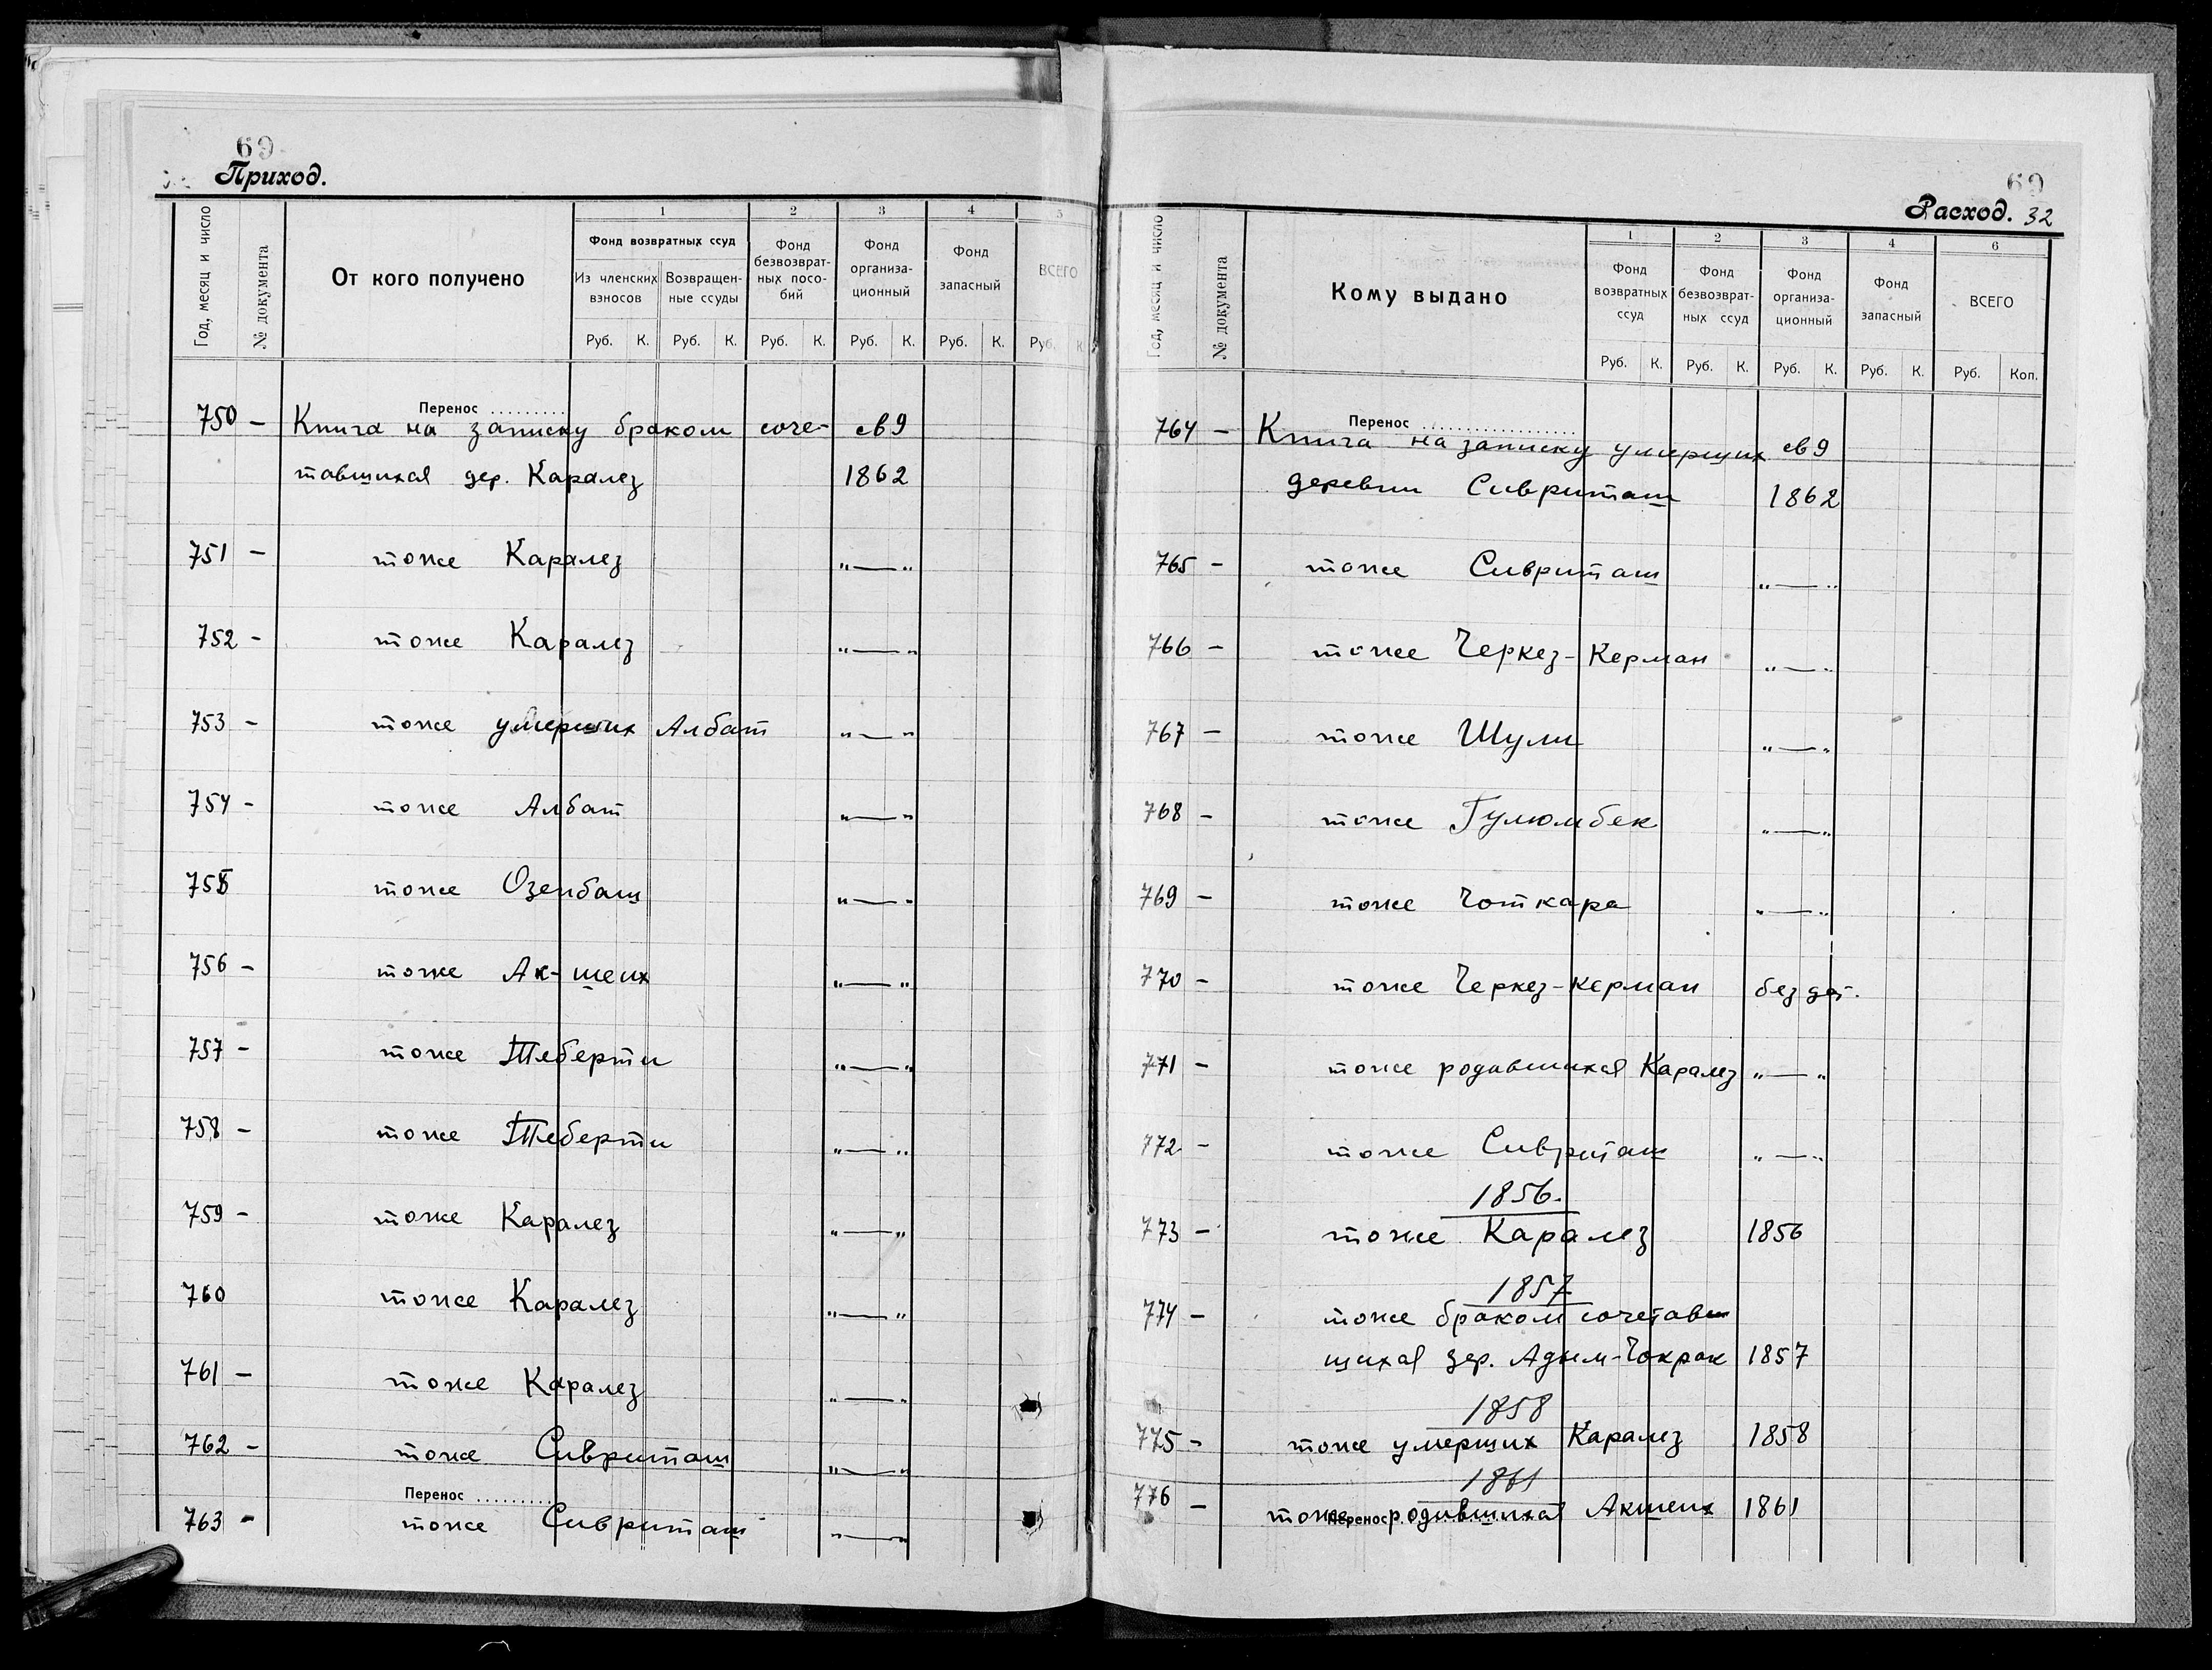 69
Приход.
Год, месяц и число
№ документа
От кого получено
1
Фонд возвратных ссуд
Из членских взносов
Возвращен-ные ссуды
2
Фонд безвозврат-ных посо-бий
3
Фонд организа-ционный
4
Фонд запасный
5
ВСЕГО
Руб. К. Руб. К. Руб. К. Руб. К. Руб. К. Руб. К.
Перенос
750 – Книга на записку браком соче- св9
тавшихся дер. Каралез 1862
751 – тоже Каралез „—„
752 – тоже Каралез „—„
753 – тоже умерших Албат „—„
754 – тоже Албат „—„
755 тоже Озенбаш „—„
756 – тоже Ак-шеих „—„
757 – тоже Теберти „—„
758 – тоже Теберти „—„
759 – тоже Каралез „—„
760 тоже Каралез „—„
761 – тоже Каралез „—„
762 – тоже Сивриташ „—„
Перенос
763 – тоже Сивриташ „—„
69
Расход. 32
Год, месяц и число
№ документа
Кому выдано
1
Фонд возвратных ссуд
2
Фонд безвозврат-ных ссуд
3
Фонд организа-ционный
4
Фонд запасный
6
ВСЕГО
Руб. К. Руб. К. Руб. К. Руб. К. Руб. Коп.
Перенос
764 – Книга на записку умерших св9
деревни Сивриташ 1862
765 – тоже Сивриташ „—„
766 – тоже Черкез-Керман „—„
767 – тоже Шули „—„
768 – тоже Гулюмбек „—„
769 – тоже Чоткара „—„
770 – тоже Черкез-керман без дат.
771 – тоже родившихся Каралез „—„
772 – тоже Сивриташ „—„
1856.
773 – тоже Каралез 1856
1857
774 – тоже браком сочетав
шихся дер. Адым-Чокрак 1857
1858
775 – тоже умерших Каралез 1858
1861
776 – тоже родившихся Акшеих 1861
Перенос